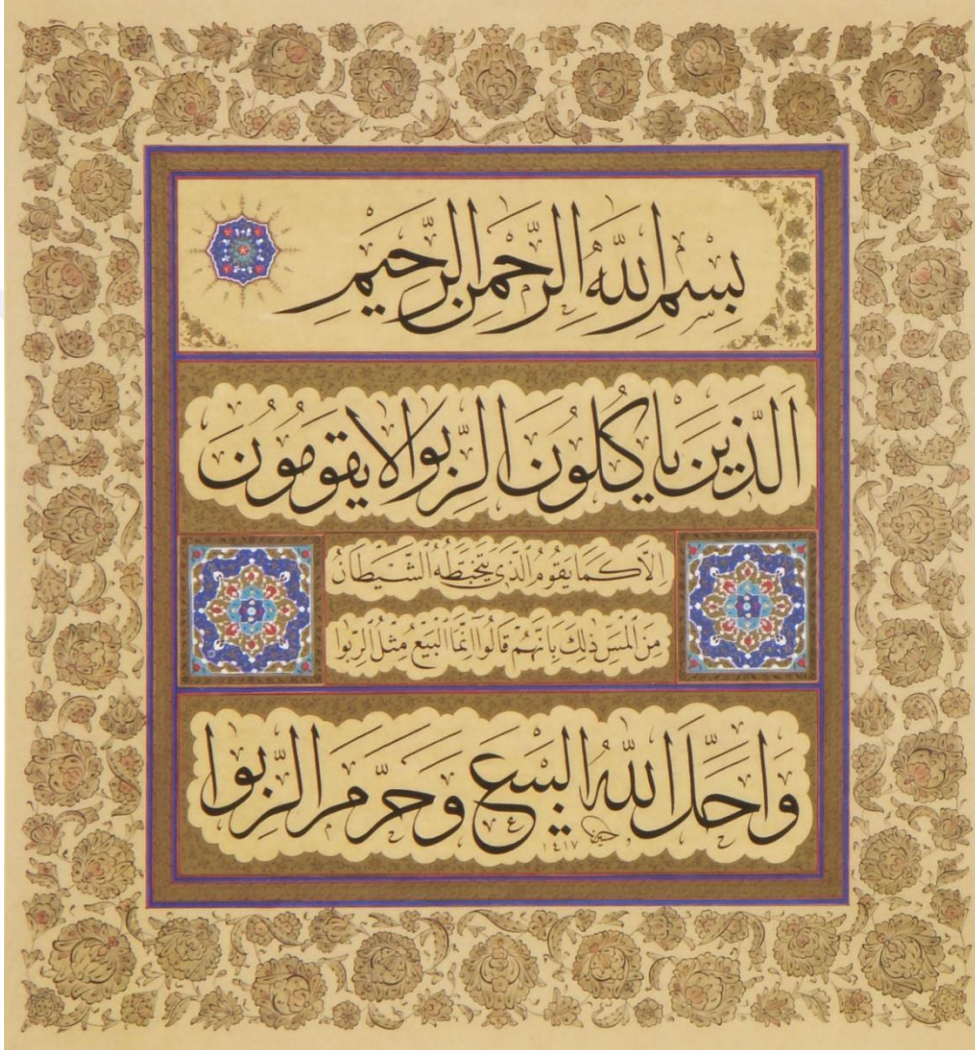 بِسْمِ اللَّهِ الرَّحْمٰنِ الرَّحِيمِ
اَلَّذِينَ يَأْكُلُونَ الرِّبٰوا لَا يَقُومُونَ
اِلَّا كَمَا يَقُومُ الَّذِي يَتَخَبَّطُهُ الشَّيْطَانُ
مِنَ الْمَسِّ ذٰلِكَ بِاَنَّهُمْ قَالُوا اِنَّمَا الْبَيْعُ مِثْلُ الرِّبٰوا
وَاَحَلَّ اللَّهُ الْبَيْعَ وَحَرَّمَ الرِّبٰوا
١٤١٧